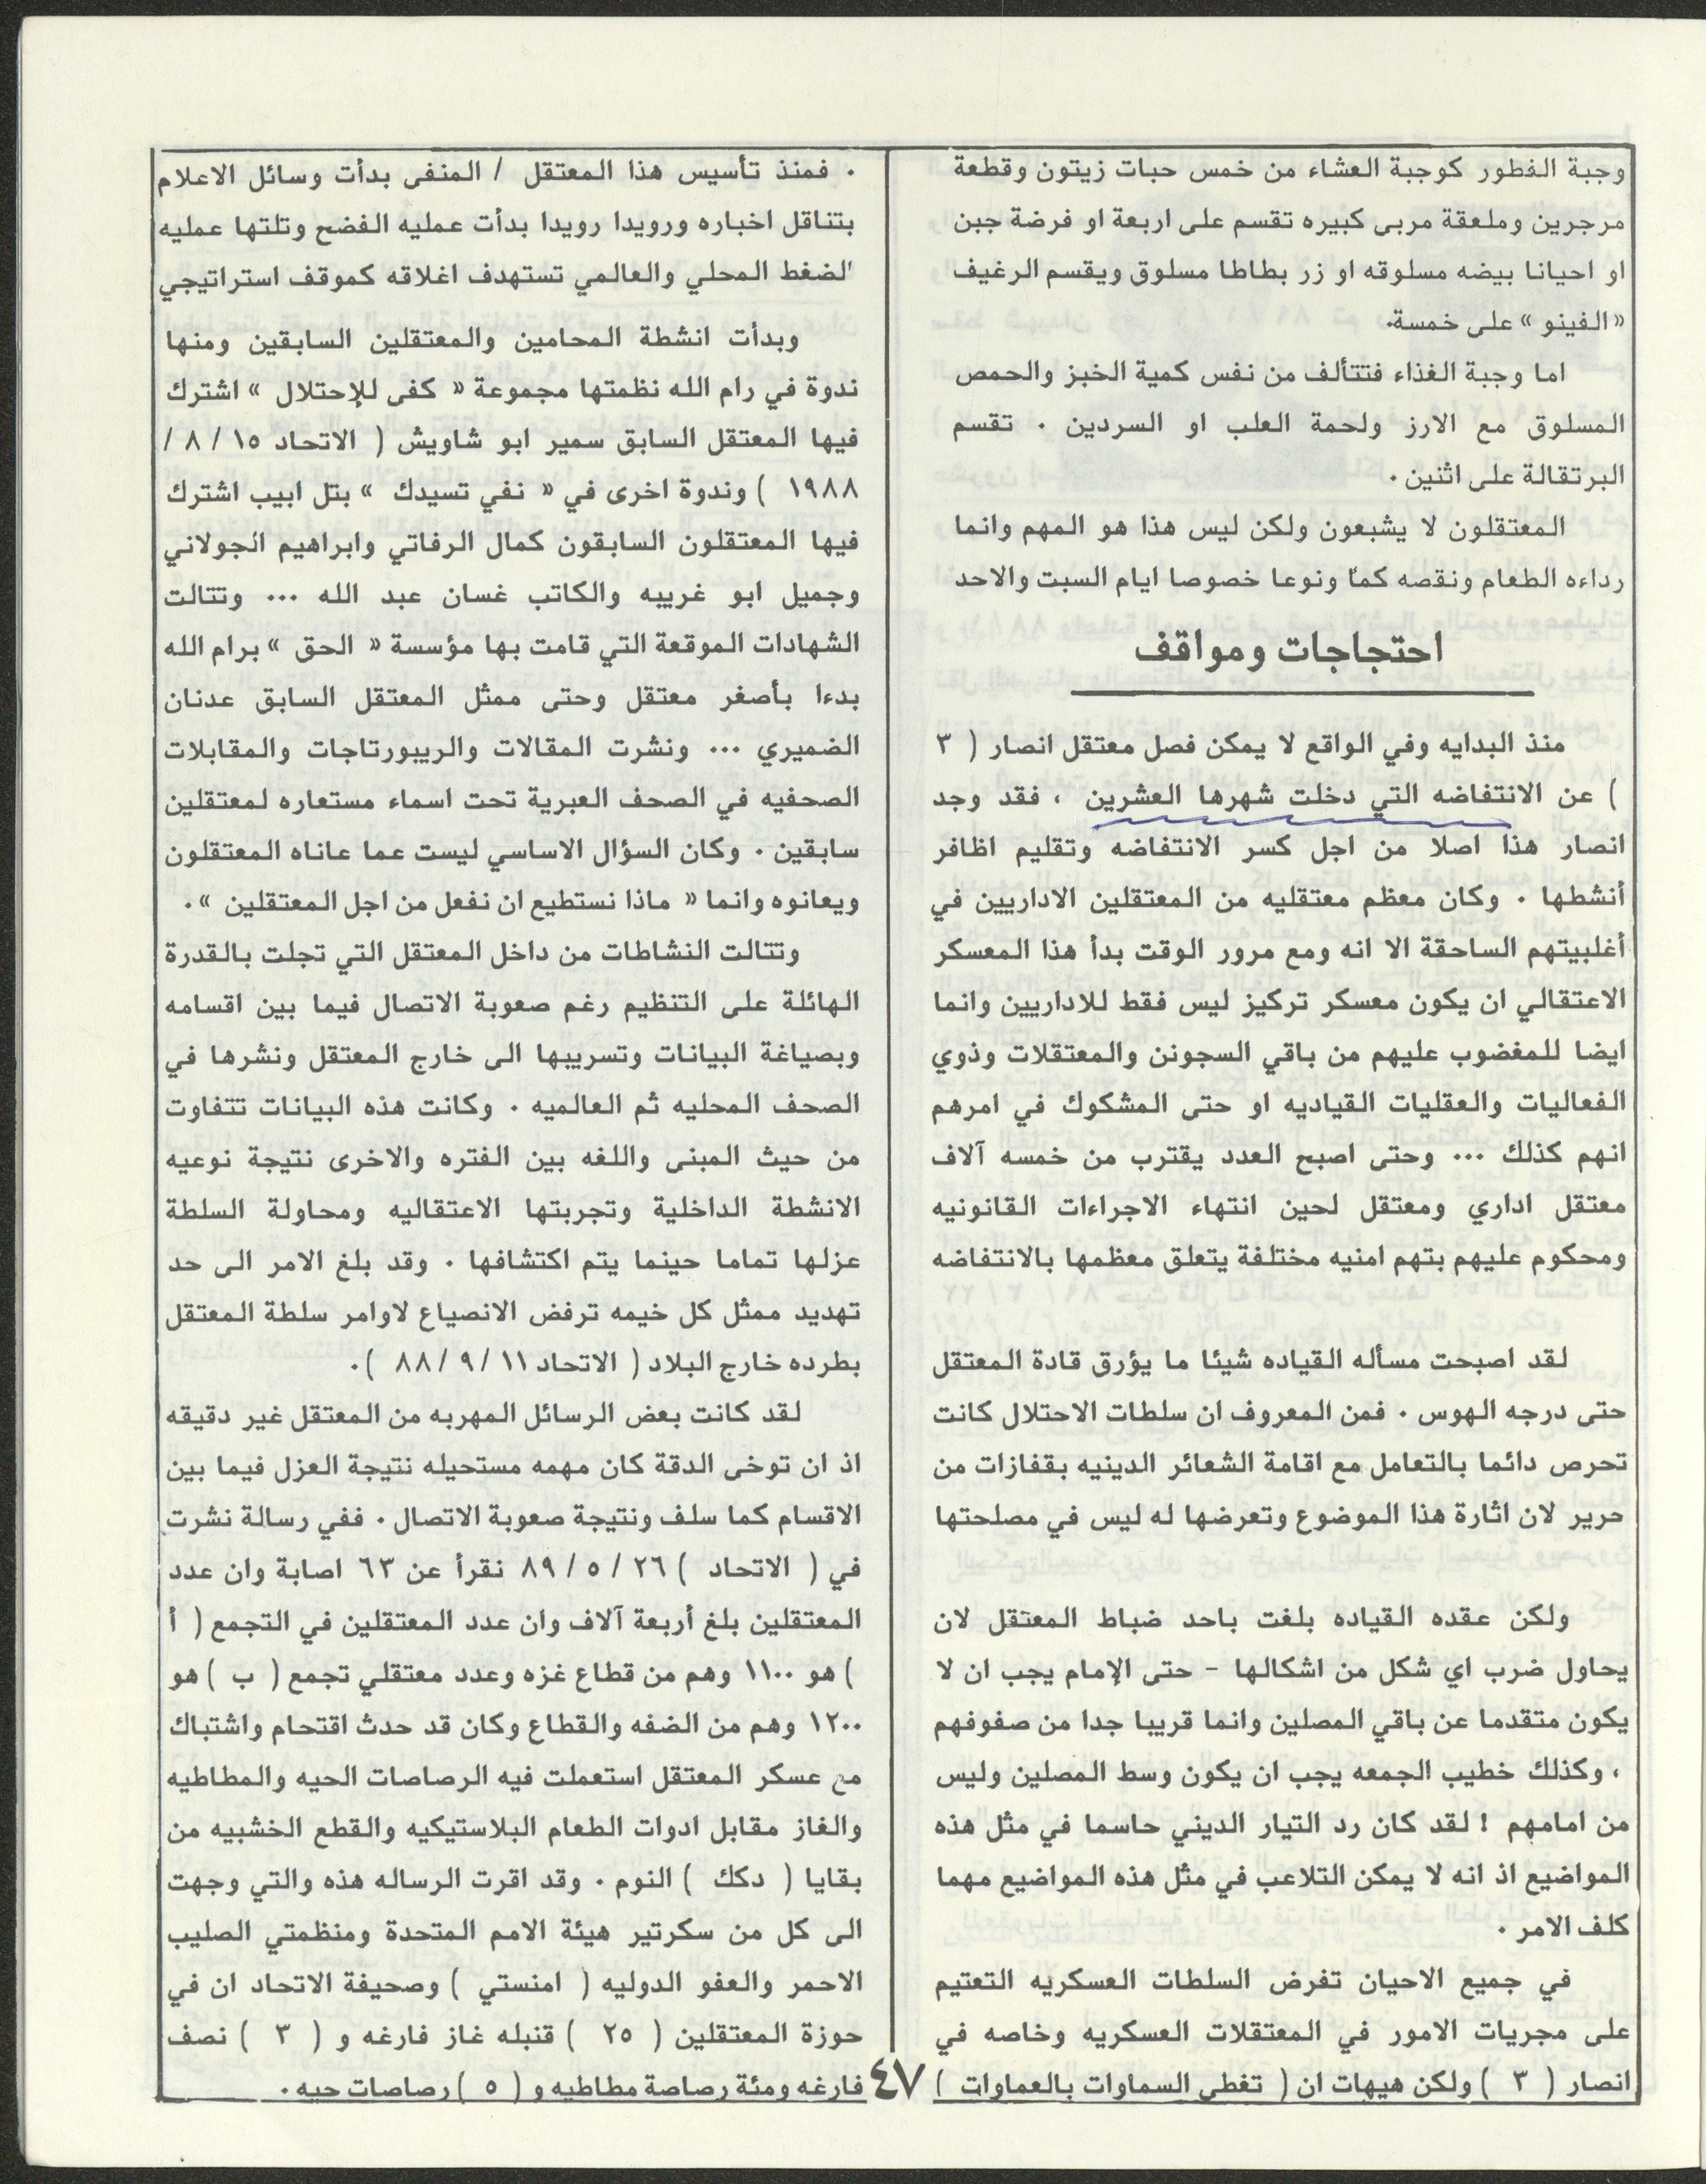 وجبة الفطور كوجبة العشاء من خمس حبات زيتون وقطعة
مرجرين وملعقة مربى كبيره تقسم على اربعة او فرضة جبن
او احيانا بيضه مسلوقه او زر بطاطا مسلوق ويقسم الرغيف
« الفينو » على خمسة.
اما وجبة الغذاء فتتألف من نفس كمية الخبز والحمص
المسلوق مع الارز ولحمة العلب او السردين . تقسم
البرتقالة على اثنين .
المعتقلون لا يشبعون ولكن ليس هذا هو المهم وانما
رداءه الطعام ونقصه كماّ ونوعا خصوصا ايام السبت والاحد
احتجاجات ومواقف
منذ البدايه وفي الواقع لا يمكن فصل معتقل انصار ( ٣
) عن الانتفاضه التي دخلت شهرها العشرين ، فقد وجد
انصار هذا اصلا من اجل كسر الانتفاضه وتقليم اظافر
أنشطها . وكان معظم معتقليه من المعتقلين الاداريين في
أغلبيتهم الساحقة الا انه ومع مرور الوقت بدأ هذا المعسكر
الاعتقالي ان يكون معسكر تركيز ليس فقط للاداريين وانما
ايضا للمغضوب عليهم من باقي السجونن والمعتقلات وذوي
الفعاليات والعقليات القياديه او حتى المشكوك في امرهم
انهم كذلك ... وحتى اصبح العدد يقترب من خمسه آلاف
معتقل اداري ومعتقل لحين انتهاء الاجراءات القانونيه
ومحكوم عليهم بتهم امنيه مختلفة يتعلق معظمها بالانتفاضه
لقد اصبحت مسأله القياده شيئا ما يؤرق قادة المعتقل
حتى درجه الهوس . فمن المعروف ان سلطات الاحتلال كانت
تحرص دائما بالتعامل مع اقامة الشعائر الدينيه بقفازات من
حرير لان اثارة هذا الموضوع وتعرضها له ليس في مصلحتها
ولكن عقده القياده بلغت باحد ضباط المعتقل لان
يحاول ضرب اي شكل من اشكالها - حتى الإمام يجب ان لا
يكون متقدما عن باقي المصلين وانما قريبا جدا من صفوفهم
، وكذلك خطيب الجمعه يجب ان يكون وسط المصلين وليس
من امامهم ! لقد كان رد التيار الديني حاسما في مثل هذه
المواضيع اذ انه لا يمكن التلاعب في مثل هذه المواضيع مهما
كلف الامر .
في جميع الاحيان تفرض السلطات العسكريه التعتيم
على مجريات الامور في المعتقلات العسكريه وخاصه في
انصار ( ٣ ) ولكن هيهات ان ( تغطى السماوات بالعماوات )
. فمنذ تأسيس هذا المعتقل / المنفى بدأت وسائل الاعلام
بتناقل اخباره ورويدا رويدا بدأت عمليه الفضح وتلتها عمليه
الضغط المحلي والعالمي تستهدف اغلاقه كموقف استراتيجي
وبدأت انشطة المحامين والمعتقلين السابقين ومنها
ندوة في رام الله نظمتها مجموعة « كفى للإحتلال » اشترك
فيها المعتقل السابق سمير ابو شاويش ( الاتحاد ١٥ / ٨ /
١٩٨٨ ) وندوة اخرى في « نفي تسيدك » بتل ابيب اشترك
فيها المعتقلون السابقون كمال الرفاتي وابراهيم الجولاني
وجميل ابو غربيه والكاتب غسان عبد الله ... وتتالت
الشهادات الموقعة التي قامت بها مؤسسة « الحق » برام الله
بدءا بأصغر معتقل وحتى ممثل المعتقل السابق عدنان
الضميري ... ونشرت المقالات والريبورتاجات والمقابلات
الصحفيه في الصحف العبرية تحت اسماء مستعاره لمعتقلين
سابقين . وكان السؤال الاساسي ليست عما عاناه المعتقلون
ويعانوه وانما « ماذا نستطيع ان نفعل من اجل المعتقلين ».
وتتالت النشاطات من داخل المعتقل التي تجلت بالقدرة
الهائلة على التنظيم رغم صعوبة الاتصال فيما بين اقسامه
وبصياغة البيانات وتسريبها الى خارج المعتقل ونشرها في
الصحف المحليه ثم العالميه . وكانت هذه البيانات تتفاوت
من حيث المبنى واللغه بين الفتره والاخرى نتيجة نوعيه
الانشطة الداخلية وتجربتها الاعتقاليه ومحاولة السلطة
عزلها تماما حينما يتم اكتشافها . وقد بلغ الامر الى حد
تهديد ممثل كل خيمه ترفض الانصياع لاوامر سلطة المعتقل
بطرده خارج البلاد ( الاتحاد ١١ / ٩ / ٨٨ ).
لقد كانت بعض الرسائل المهربه من المعتقل غير دقيقه
اذ ان توخى الدقة كان مهمه مستحيله نتيجة العزل فيما بين
الاقسام كما سلف ونتيجة صعوبة الاتصال . ففي رسالة نشرت
في ( الاتحاد ) ٢٦ / ٥ / ٨٩ نقرأ عن ٦٣ اصابة وان عدد
المعتقلين بلغ أربعة آلاف وان عدد المعتقلين في التجمع ( أ
) هو ١١٠٠ وهم من قطاع غزه وعدد معتقلي تجمع ( ب ) هو
١٢٠٠ وهم من الضفه والقطاع وكان قد حدث اقتحام واشتباك
مع عسكر المعتقل استعملت فيه الرصاصات الحيه والمطاطيه
والغاز مقابل ادوات الطعام البلاستيكيه والقطع الخشبيه من
بقايا ( دكك ) النوم . وقد اقرت الرساله هذه والتي وجهت
الى كل من سكرتير هيئة الامم المتحدة ومنظمتي الصليب
الاحمر والعفو الدوليه ( امنستي ) وصحيفة الاتحاد ان في
حوزة المعتقلين ( ٢٥ ) قنبله غاز فارغه و ( ٣ ) نصف
فارغه ومئة رصاصة مطاطيه و ( ٥ ) رصاصات حيه .
٤٧